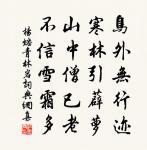 鳥外無行迹
寒林引薜蘿
山中僧已老
不信雪霜多
楊蟠青林岩詞典網喜